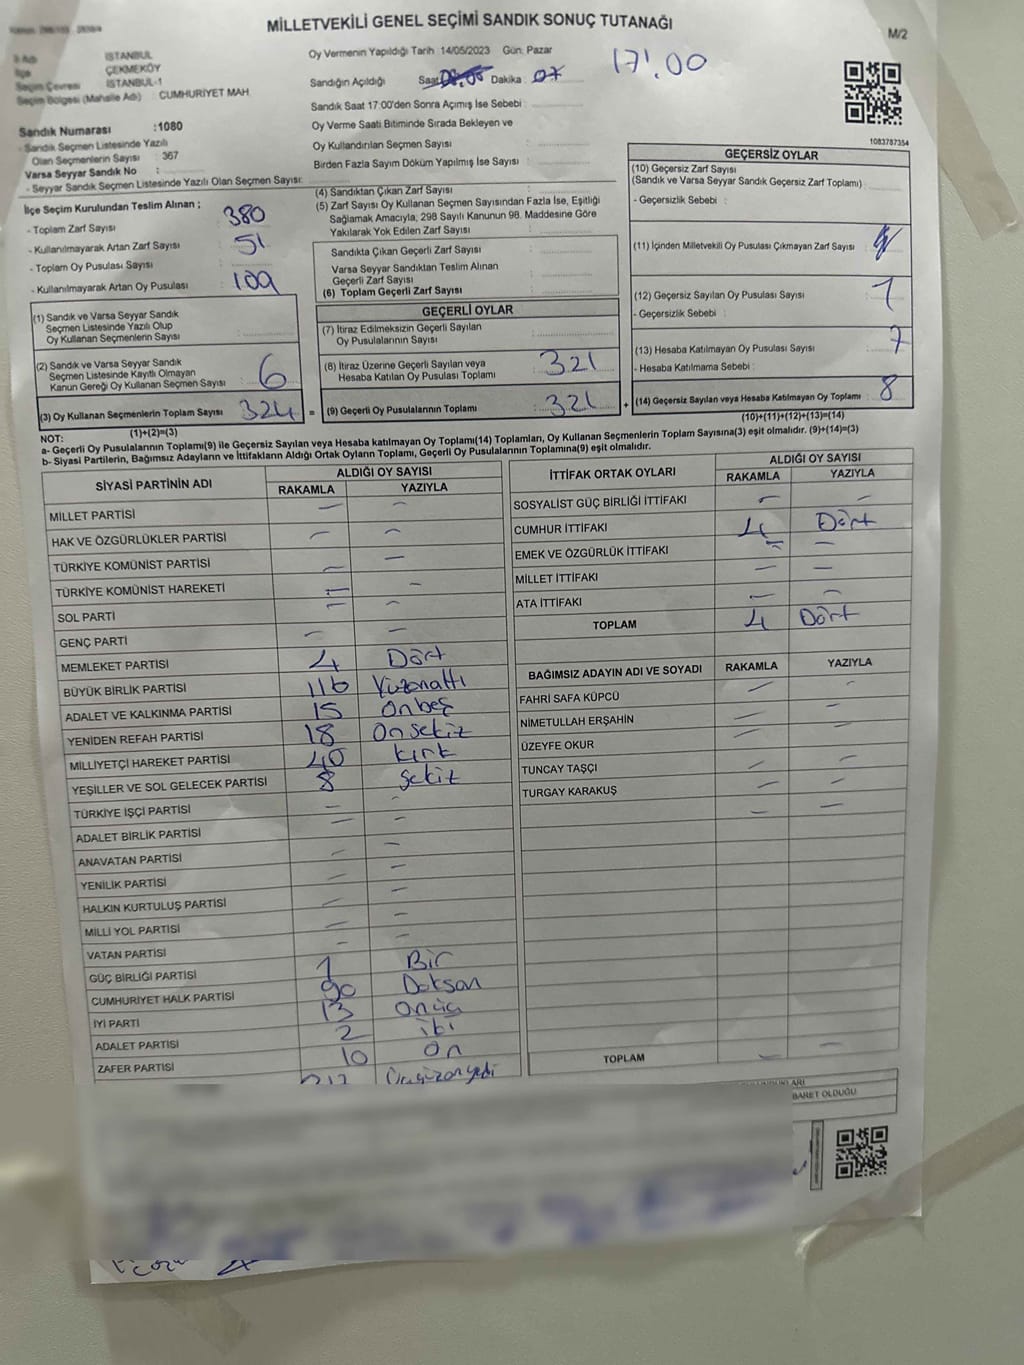 MİLLETVEKİLİ GENEL SEÇİMİ SANDIK SONUÇ TUTANAĞI
M/2
İSTANBUL
ÇEKMEKÖY
Seçim Çevresi İSTANBUL-1
Seçim Bölgesi (Mahalle Adı) : CUMHURİYET MAH
Sandık Numarası :1080
- Sandık Seçmen Listesinde Yazılı
Olan Seçmenlerin Sayısı : 367
Varsa Seyyar Sandık No :
- Seyyar Sandık Seçmen Listesinde Yazılı Olan Seçmen Sayısı:
Oy Vermenin Yapıldığı Tarih :14/05/2023 Gün: Pazar
Sandığın Açıldığı Saat Dakika : 07
17:00
Sandık Saat 17:00'den Sonra Açımış İse Sebebi :
Oy Verme Saati Bitiminde Sırada Bekleyen ve
Oy Kullandırılan Seçmen Sayısı :
Birden Fazla Sayım Döküm Yapılmış İse Sayısı :
1083787354
İlçe Seçim Kurulundan Teslim Alınan ;
- Toplam Zarf Sayısı : 380
- Kullanılmayarak Artan Zarf Sayısı : 51
- Toplam Oy Pusulası Sayısı :
- Kullanılmayarak Artan Oy Pusulası : 109
(1) Sandık ve Varsa Seyyar Sandık
Seçmen Listesinde Yazılı Olup
Oy Kullanan Seçmenlerin Sayısı :
(2) Sandık ve Varsa Seyyar Sandık
Seçmen Listesinde Kayıtlı Olmayan
Kanun Gereği Oy Kullanan Seçmen Sayısı : 6
(3) Oy Kullanan Seçmenlerin Toplam Sayısı : 324 =
(1)+(2)=(3)
(4) Sandıktan Çıkan Zarf Sayısı :
(5) Zarf Sayısı Oy Kullanan Seçmen Sayısından Fazla İse, Eşitliği
Sağlamak Amacıyla, 298 Sayılı Kanunun 98. Maddesine Göre
Yakılarak Yok Edilen Zarf Sayısı :
Sandıkta Çıkan Geçerli Zarf Sayısı :
Varsa Seyyar Sandıktan Teslim Alınan
Geçerli Zarf Sayısı :
(6) Toplam Geçerli Zarf Sayısı :
GEÇERLİ OYLAR
(7) İtiraz Edilmeksizin Geçerli Sayılan
Oy Pusulalarının Sayısı :
(8) İtiraz Üzerine Geçerli Sayılan veya
Hesaba Katılan Oy Pusulası Toplamı : 321
(9) Geçerli Oy Pusulalarının Toplamı : 321 +
GEÇERSİZ OYLAR
(10) Geçersiz Zarf Sayısı
(Sandık ve Varsa Seyyar Sandık Geçersiz Zarf Toplamı) :
- Geçersizlik Sebebi :
(11) İçinden Milletvekili Oy Pusulası Çıkmayan Zarf Sayısı :
(12) Geçersiz Sayılan Oy Pusulası Sayısı : 1
- Geçersizlik Sebebi :
(13) Hesaba Katılmayan Oy Pusulası Sayısı : 7
- Hesaba Katılmama Sebebi :
(14) Geçersiz Sayılan veya Hesaba Katılmayan Oy Toplamı : 8
(10)+(11)+(12)+(13)=(14)
NOT:
a- Geçerli Oy Pusulalarının Toplamı(9) ile Geçersiz Sayılan veya Hesaba katılmayan Oy Toplamı(14) Toplamları, Oy Kullanan Seçmenlerin Toplam Sayısına(3) eşit olmalıdır. (9)+(14)=(3)
b- Siyasi Partilerin, Bağımsız Adayların ve İttifakların Aldığı Ortak Oyların Toplamı, Geçerli Oy Pusulalarının Toplamına(9) eşit olmalıdır.
SİYASİ PARTİNİN ADI
ALDIĞI OY SAYISI
RAKAMLA YAZIYLA
MİLLET PARTİSİ — —
HAK VE ÖZGÜRLÜKLER PARTİSİ — —
TÜRKİYE KOMÜNİST PARTİSİ — —
TÜRKİYE KOMÜNİST HAREKETİ — —
SOL PARTİ — —
GENÇ PARTİ — —
MEMLEKET PARTİSİ 4 Dört
BÜYÜK BİRLİK PARTİSİ 116 Yüzonaltı
ADALET VE KALKINMA PARTİSİ 15 Onbeş
YENİDEN REFAH PARTİSİ 18 Onsekiz
MİLLİYETÇİ HAREKET PARTİSİ 40 Kırk
YEŞİLLER VE SOL GELECEK PARTİSİ 8 Sekiz
TÜRKİYE İŞÇİ PARTİSİ — —
ADALET BİRLİK PARTİSİ — —
ANAVATAN PARTİSİ — —
YENİLİK PARTİSİ — —
HALKIN KURTULUŞ PARTİSİ — —
MİLLİ YOL PARTİSİ — —
VATAN PARTİSİ — —
GÜÇ BİRLİĞİ PARTİSİ 1 Bir
CUMHURİYET HALK PARTİSİ 90 Doksan
İYİ PARTİ 13 Onüç
ADALET PARTİSİ 2 iki
ZAFER PARTİSİ 10 On
Üçyüzonyedi
İTTİFAK ORTAK OYLARI
ALDIĞI OY SAYISI
RAKAMLA YAZIYLA
SOSYALİST GÜÇ BİRLİĞİ İTTİFAKI — —
CUMHUR İTTİFAKI 4 Dört
EMEK VE ÖZGÜRLÜK İTTİFAKI — —
MİLLET İTTİFAKI — —
ATA İTTİFAKI — —
TOPLAM 4 Dört
BAĞIMSIZ ADAYIN ADI VE SOYADI RAKAMLA YAZIYLA
FAHRİ SAFA KÜPCÜ — —
NİMETULLAH ERŞAHİN — —
ÜZEYFE OKUR —
TUNCAY TAŞÇI — —
TURGAY KARAKUŞ — —
TOPLAM — —
BARET OLDUĞU